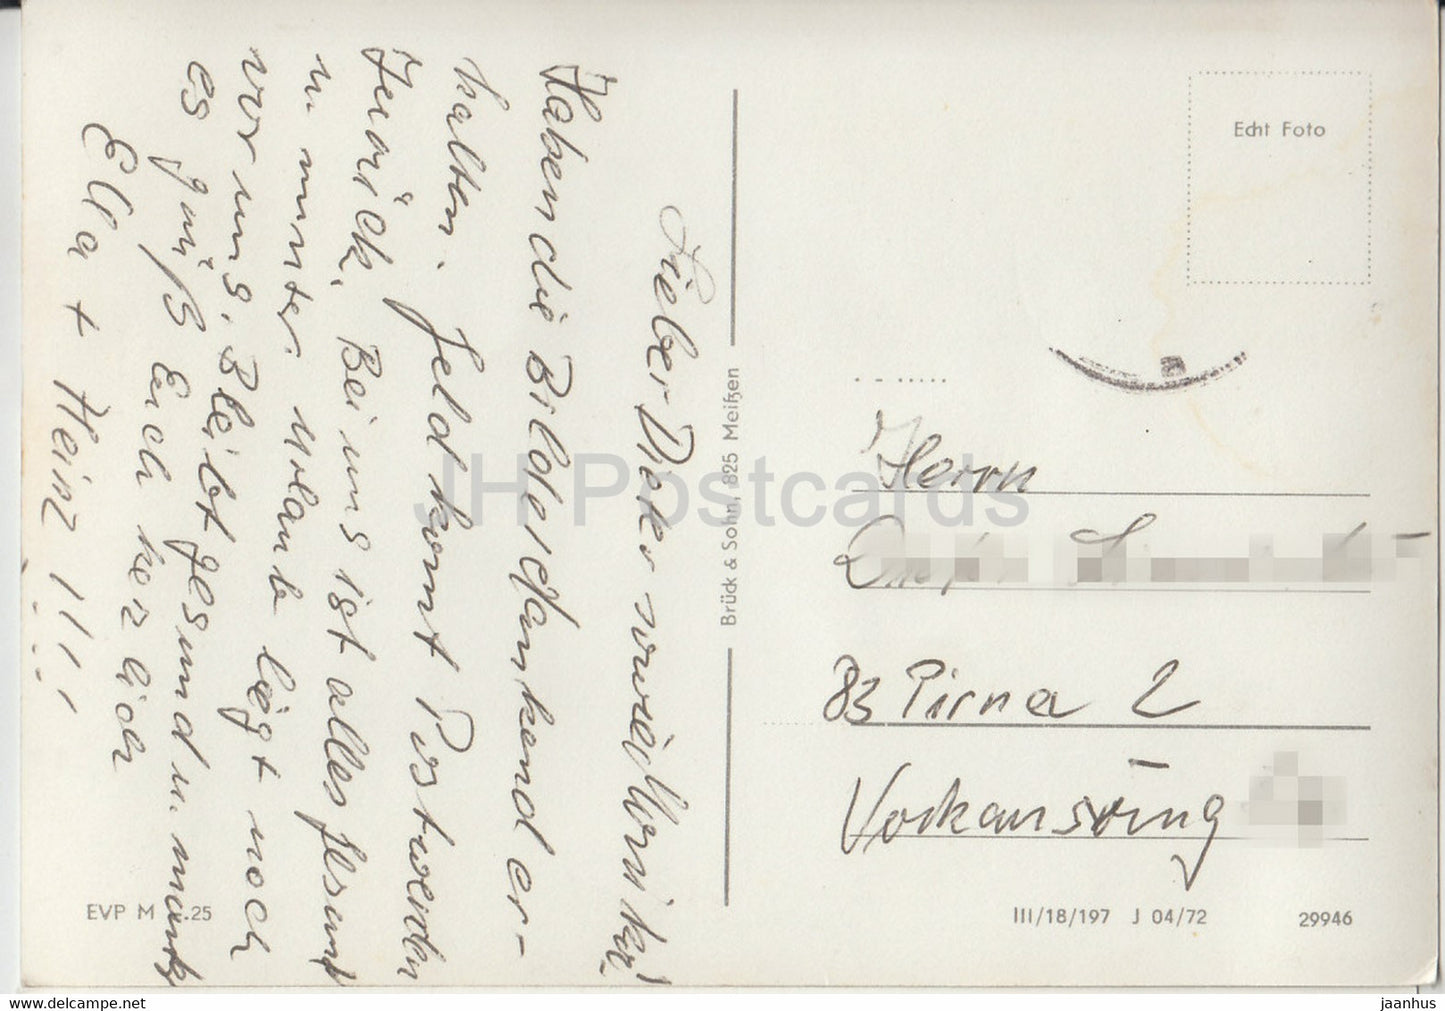 Lieber
Haben die Bilder dankend er-
halten. Geld komt Postwenden
Zurück. Bei uns ist alles Gesunt
u. munter. Urlaub ligt noch
vor uns. Bleibt gesund u. munter
es grüß Euch herzlich
Ella + Heinz !!!
Brück & Sohn, 825 Meißen
Echt Foto
Herrn
83 Pirna 2
EVP M .25
III/18/197 J 04/72
29946
JH Postcards
www.delcampe.net
jaanhus